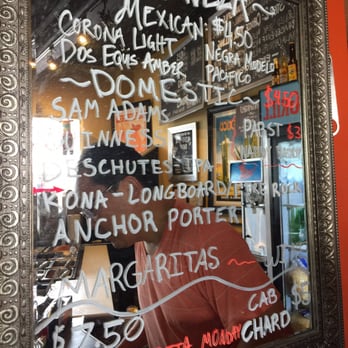 MEXICAN: $4.50
CORONA LIGHT NEGRA MODELO
DOS EQUIS AMBER PACIFICO
~DOMESTIC~ $4.50
SAM ADAMS
GUINNESS PABST $3
DESCHUTES IPA
KONA-LONGBOARD/FIRE ROCK
ANCHOR PORTER
MARGARITAS ~
$7.50
CAB
CHARD
MONDAY